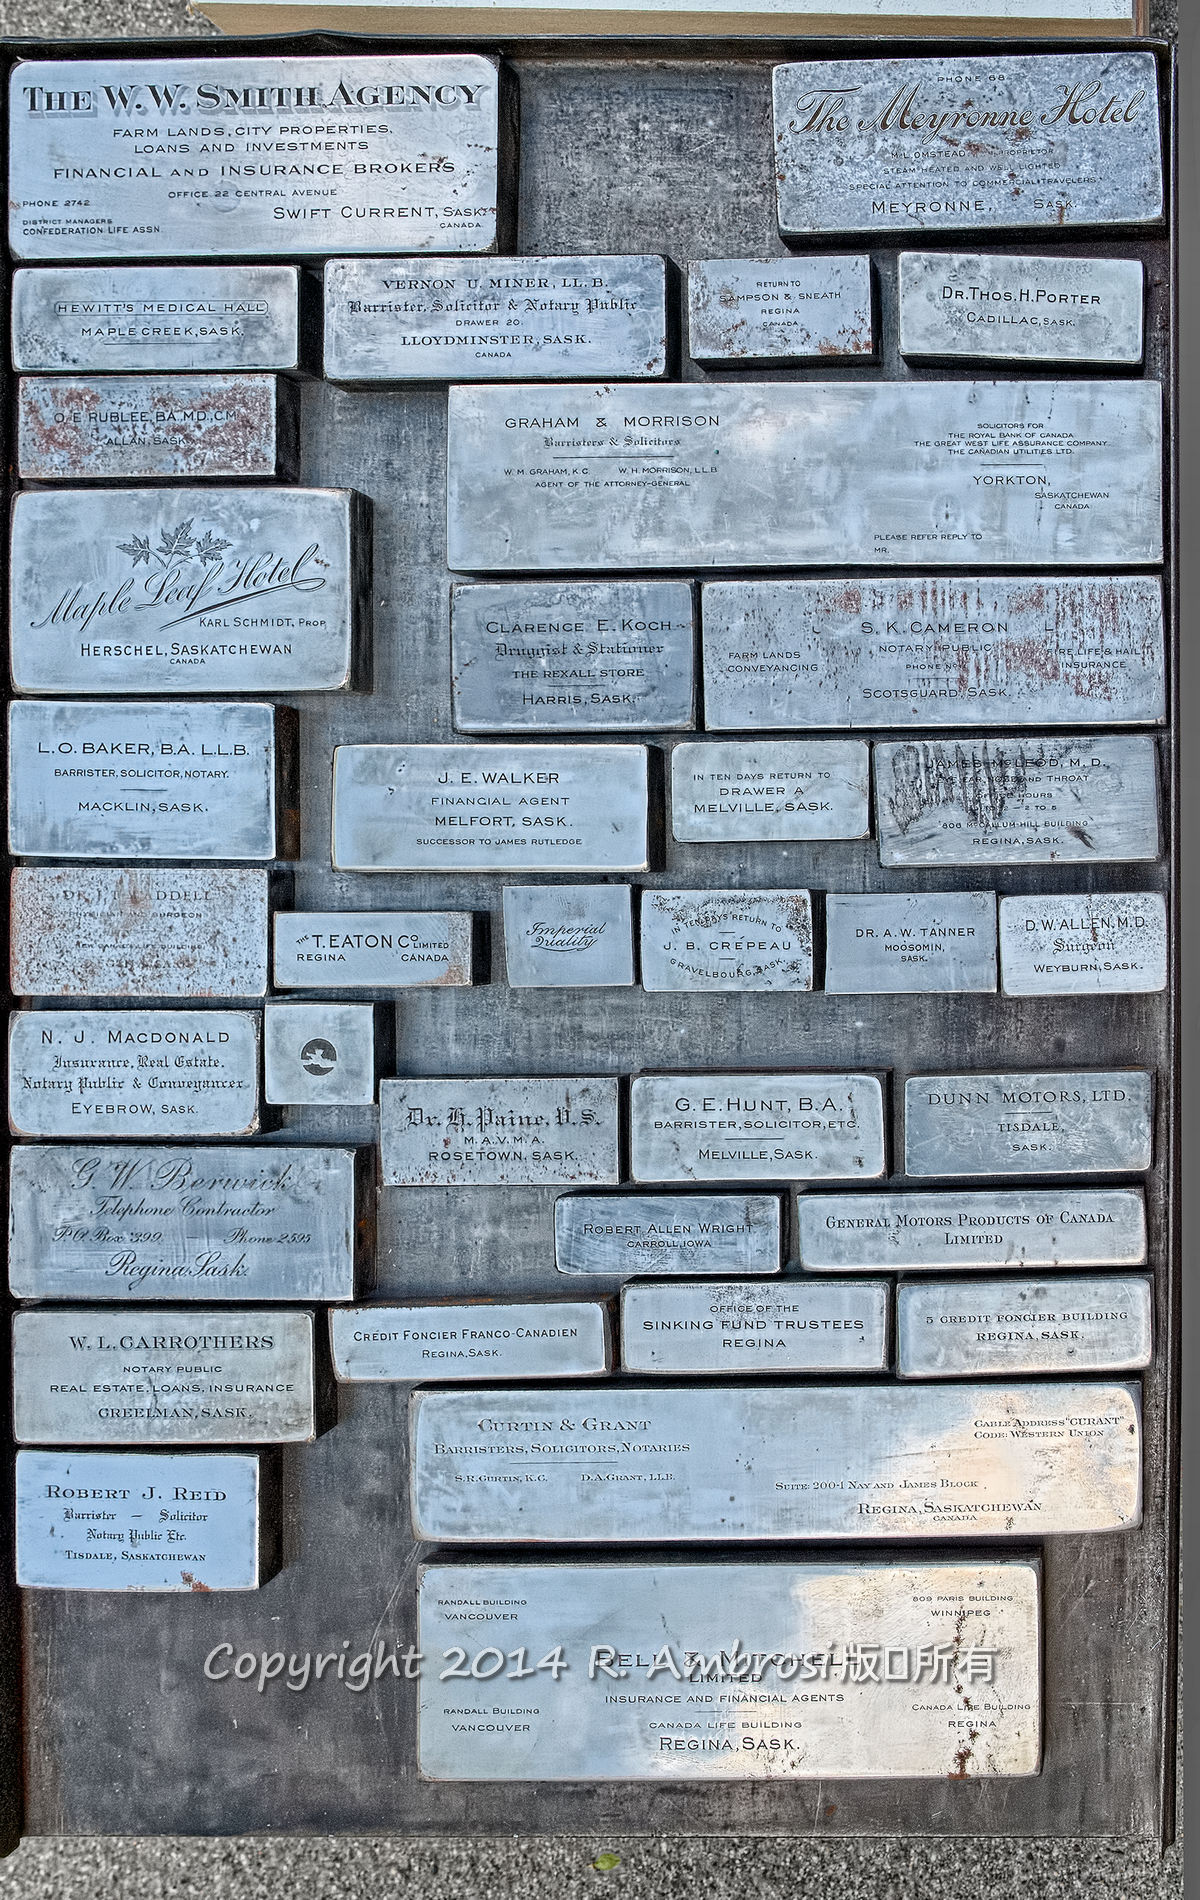 THE W.W. SMITH AGENCY
FARM LANDS, CITY PROPERTIES,
LOANS AND INVESTMENTS
FINANCIAL AND INSURANCE BROKERS
OFFICE 22 CENTRAL AVENUE
PHONE 2742
SWIFT CURRENT, SASK.
CANADA
DISTRICT MANAGERS
CONFEDERATION LIFE ASSN.
PHONE 68
The Meyronne Hotel
M. L. OMSTEAD, PROPRIETOR
STEAM HEATED AND WELL LIGHTED
SPECIAL ATTENTION TO COMMERCIAL TRAVELERS
MEYRONNE, SASK.
HEWITT'S MEDICAL HALL
MAPLE CREEK, SASK.
VERNON U. MINER, LL.B.
Barrister, Solicitor & Notary Public
DRAWER 20.
LLOYDMINSTER, SASK.
CANADA
RETURN TO
SAMPSON & SNEATH
REGINA
CANADA
DR. THOS. H. PORTER
CADILLAC, SASK.
O. E. RUBLEE, BA. MD., CM.
ALLAN, SASK.
GRAHAM & MORRISON
Barristers & Solicitors
W. M. GRAHAM, K.C. W. H. MORRISON, L.L.B
AGENT OF THE ATTORNEY-GENERAL
SOLICITORS FOR
THE ROYAL BANK OF CANADA
THE GREAT WEST LIFE ASSURANCE COMPANY
THE CANADIAN UTILITIES LTD.
YORKTON,
SASKATCHEWAN
CANADA
PLEASE REFER REPLY TO
MR.
Maple Leaf Hotel
KARL SCHMIDT, PROP.
HERSCHEL, SASKATCHEWAN
CANADA
CLARENCE E. KOCH
Druggist & Stationer
THE REXALL STORE
HARRIS, SASK.
S. K. CAMERON
NOTARY PUBLIC
PHONE NO
FARM LANDS
CONVEYANCING
FIRE, LIFE & HAIL
INSURANCE
SCOTSGUARD, SASK.
L. O. BAKER, B.A. L.L.B.
BARRISTER, SOLICITOR, NOTARY.
MACKLIN, SASK.
J. E. WALKER
FINANCIAL AGENT
MELFORT, SASK.
SUCCESSOR TO JAMES RUTLEDGE
IN TEN DAYS RETURN TO
DRAWER A
MELVILLE, SASK.
JAMES McLEOD, M. D.
EYE, EAR, NOSE AND THROAT
OFFICE HOURS
2 TO 5
806 McCALLUM-HILL BUILDING
REGINA, SASK.
DR. J.
SURGEON
LIFE BUILDING
THE T. EATON Co LIMITED
REGINA CANADA
Imperial
Quality
IN TEN DAYS RETURN TO
J. B. CRÉPEAU
GRAVELBOURG, SASK.
DR. A. W. TANNER
MOOSOMIN,
SASK.
D. W. ALLEN, M.D.
Surgeon
WEYBURN, SASK.
N. J. MACDONALD
Insurance, Real Estate,
Notary Public & Conveyancer
EYEBROW, SASK.
Dr. H. Paine, V.S.
M.A.V.M.A.
ROSETOWN, SASK.
G. E. HUNT, B.A.
BARRISTER, SOLICITOR, ETC.
MELVILLE, SASK.
DUNN MOTORS, LTD.
TISDALE,
SASK.
G. W. Berwick
Telephone Contractor
P.O. Box 399 — Phone 2595
Regina, Sask.
ROBERT ALLEN WRIGHT
CARROLL, IOWA
GENERAL MOTORS PRODUCTS OF CANADA
LIMITED
W. L. CARROTHERS
NOTARY PUBLIC
REAL ESTATE, LOANS, INSURANCE
CREELMAN, SASK.
CRÉDIT FONCIER FRANCO-CANADIEN
REGINA, SASK.
OFFICE OF THE
SINKING FUND TRUSTEES
REGINA
5 CREDIT FONCIER BUILDING
REGINA, SASK.
CURTIN & GRANT
BARRISTERS, SOLICITORS, NOTARIES
S. R. CURTIN, K.C. D. A. GRANT, LL.B.
CABLE ADDRESS "CURANT"
CODE: WESTERN UNION
SUITE: 200-1 NAY AND JAMES BLOCK
REGINA, SASKATCHEWAN
CANADA
ROBERT J. REID
Barrister — Solicitor
Notary Public Etc.
TISDALE, SASKATCHEWAN
RANDALL BUILDING
VANCOUVER
809 PARIS BUILDING
WINNIPEG
BELL & MITCHELL
LIMITED
INSURANCE AND FINANCIAL AGENTS
RANDALL BUILDING
VANCOUVER
CANADA LIFE BUILDING
REGINA, SASK.
CANADA LIFE BUILDING
REGINA
Copyright 2014 R. Ambrosi版所有